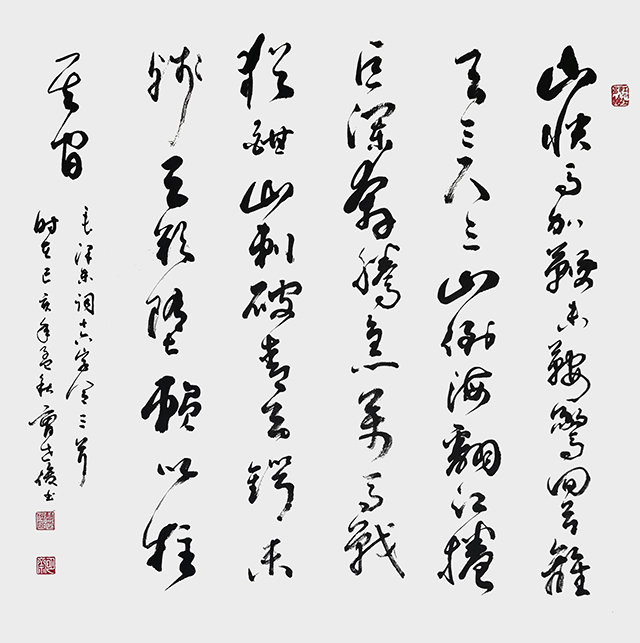 山快馬加鞭未鞍驚回首離
天三尺三山倒海翻江捲
巨瀾奔騰急萬馬戰
猶酣山刺破青天鍔未
殘天欲墮賴以拄
其間
毛澤東詞十六字令三首
時在己亥年孟秋書